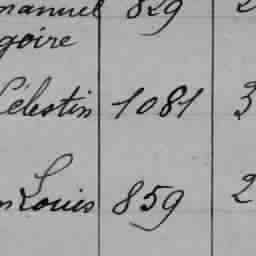 manuel 829 2
goire
Célestin 1081 3
n Louis 859 2